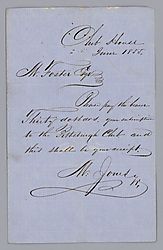 Club House
June 1855.
Mr Foster Esqr
Please pay the bearer
Thirty dollars, your subscription
to the Pittsburgh Club and
this shall be your receipt,
M. Jones